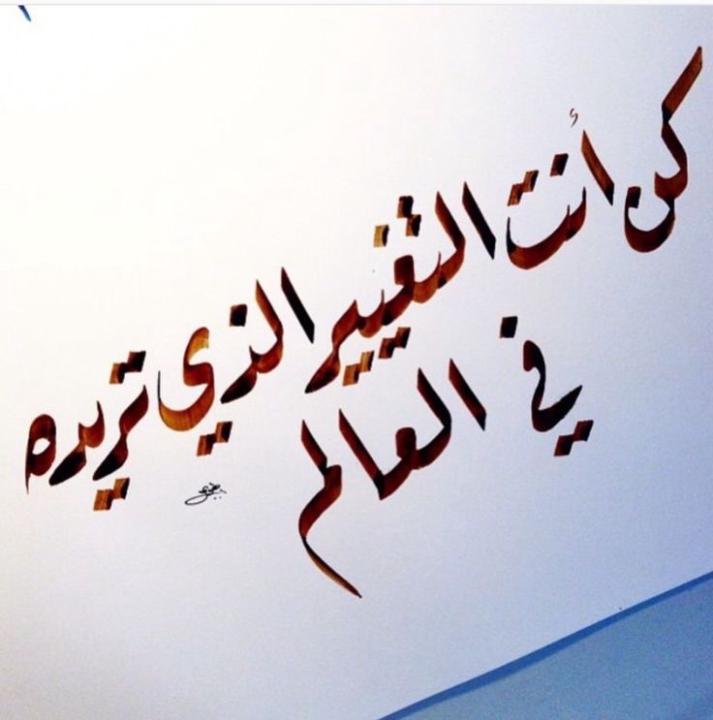 كن أنت التغيير الذي تريده
في العالم